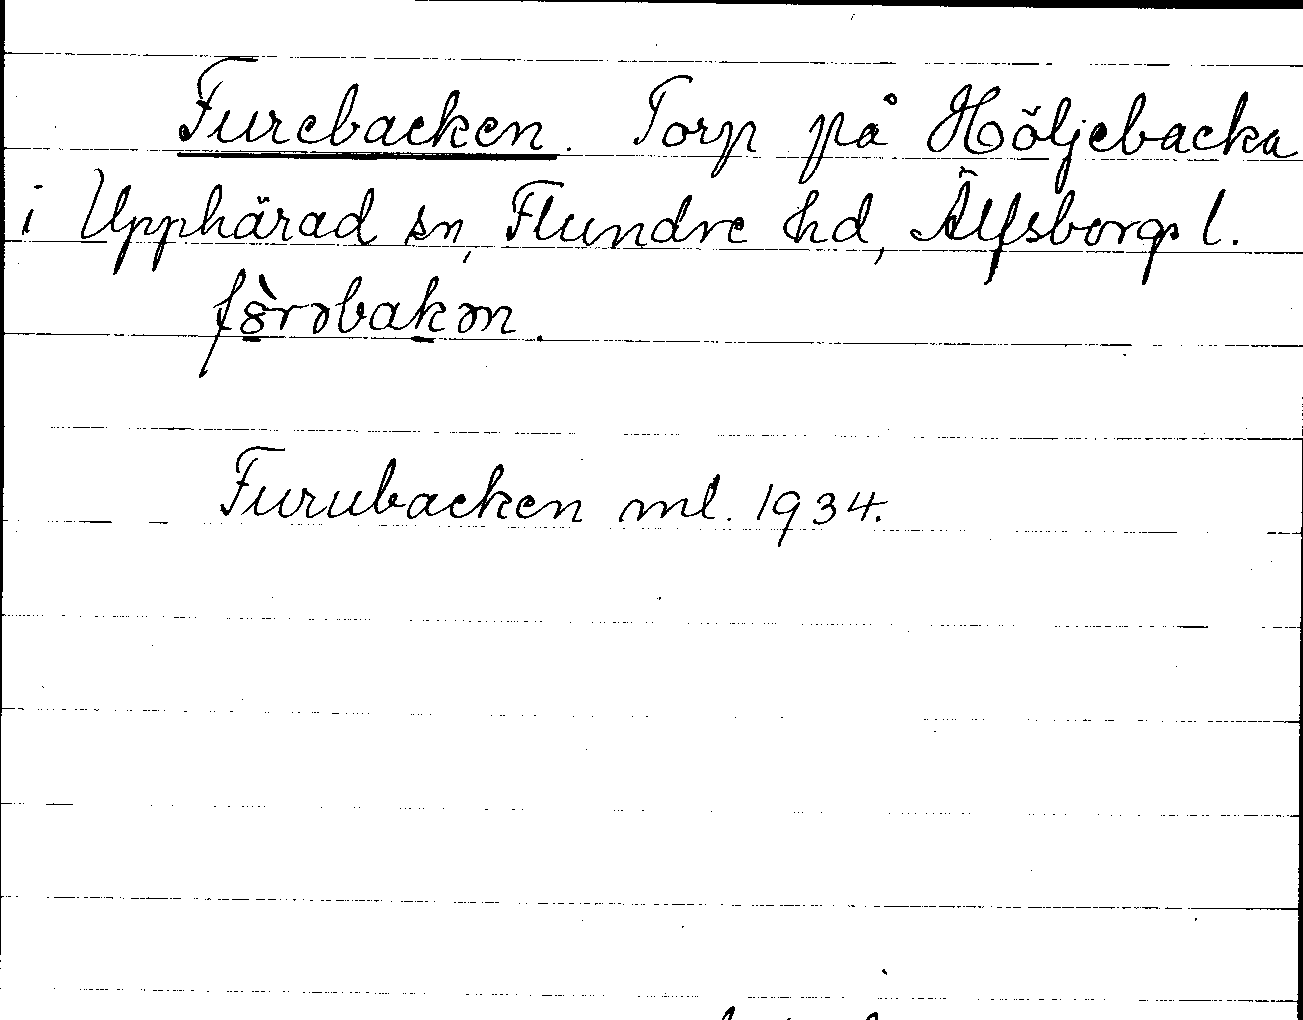 Furebacken. Torp på Höljebacka
i Upphärad sn, Flundre hd, Älfsborgs l.
fȣ̀rəbakən.
Furubacken ml. 1934.